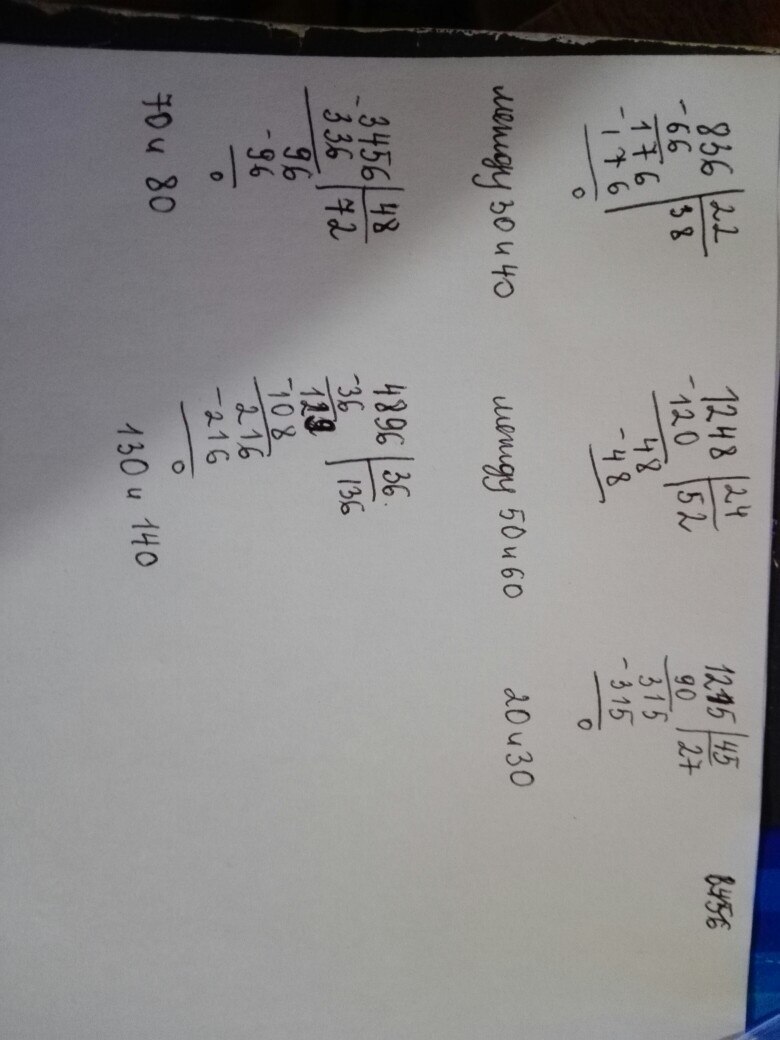 836 | 22
-66 | 38
176
-176
0
между 30 и 40
1248 | 24
-120 | 52
48
-48
между 50 и 60
1215 | 45
90 | 27
315
-315
0
20 и 30
3456 | 48
-336 | 72
96
-96
0
70 и 80
4896 | 36.
-36 | 136
129
-108
216
-216
0
130 и 140